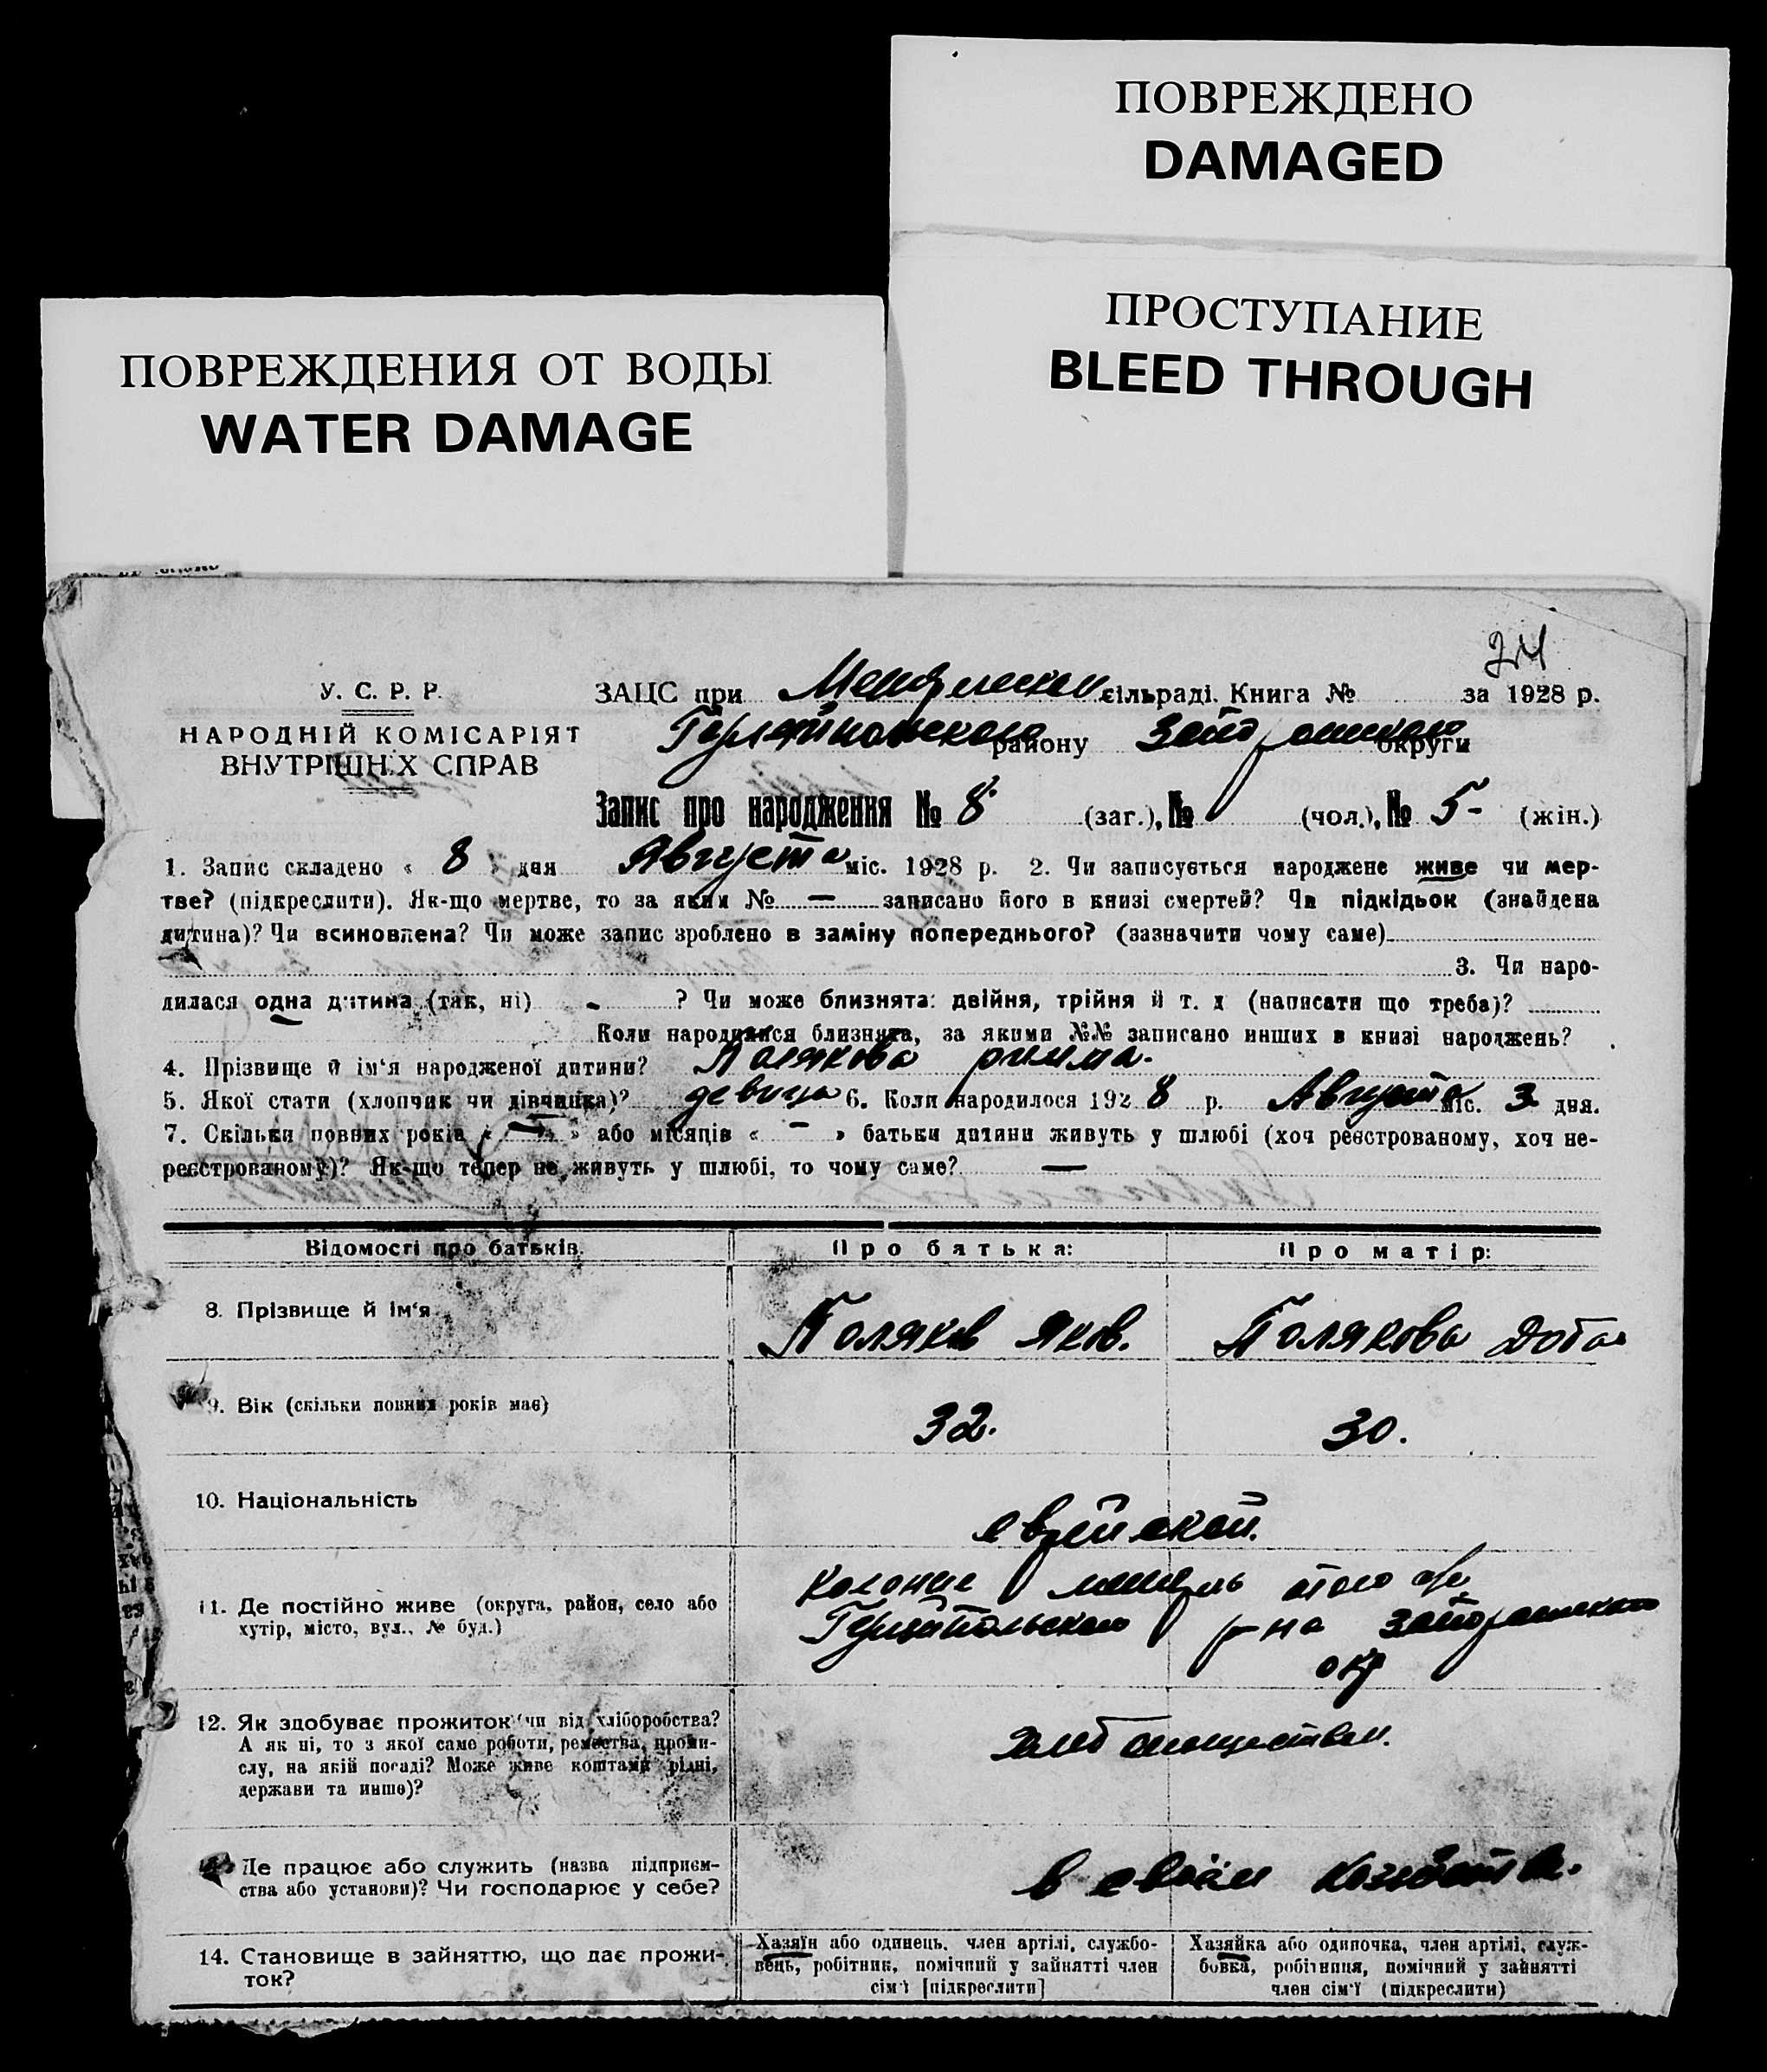 ПОВРЕЖДЕНО
DAMAGED
ПРОСТУПАНИЕ
BLEED THROUGH
ПОВРЕЖДЕНИЯ ОТ ВОДЫ
WATER DAMAGE
24
У. С. Р. Р.
НАРОДНІЙ КОМІСАРІЯТ
ВНУТРІШНІХ СПРАВ
ЗАЦС при сільраді. Книга № за 1928 р.
району округи
Запис про народження № 8 (заг.), № (чол.), № 5 - (жін.)
1. Запис складено « 8 » дня Августа міс. 1928 р. 2. Чи записується народжене живе чи мер-
тве? (підкреслити). Як-що мертве, то за яким № — записано його в книзі смертей? Чи підкідьок (знайдена
дитина)? Чи всиновлена? Чи може запис зроблено в заміну попереднього? (зазначити чому саме)
3. Чи наро-
дилася одна дитина (так, ні) - ? Чи може близнята: двійня, трійня й т. д (написати що треба)?
Коли народилися близнята, за якими №№ записано инших в книзі народжень?
4. Прізвище й ім'я народженої дитини? Полякова Рима.
5. Якої стати (хлопчик чи дівчинка)? девица 6. Коли народилося 1928 р. Августа міс. 3 дня.
7. Скільки повних років « — » або місяців « - » батьки дитини живуть у шлюбі (хоч реєстрованому, хоч не-
реєстрованому)? Як-що тепер не живуть у шлюбі, то чому саме? —
Відомості про батьків. Про батька: Про матір:
8. Прізвище й ім'я Поляков Яков. Полякова Доба
9. Вік (скільки повних років має) 32. 30.
10. Національність еврейской.
11. Де постійно живе (округа, район, село або
хутір, місто, вул., № буд.)
колоние того же
р-на
окр
12. Як здобуває прожиток чи від хліборобства?
А як ні, то з якої саме роботи, ремества, проми-
слу, на якій посаді? Може живе коштами рідні,
держави та инше)?
13. Де працює або служить (назва підприєм-
ства або установи)? Чи господарює у себе?
в своем хозяйстве.
14. Становище в зайняттю, що дає прожи-
ток?
Хазяїн або одинець, член артілі, службо-
вець, робітник, помічний у зайнятті член
сім'ї [підкреслити]
Хазяйка або одиночка, член артілі, служ-
бовка, робітниця, помічний у зайнятті
член сім'ї (підкреслити)